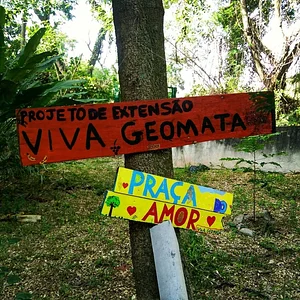 PROJETO DE EXTENSÃO
VIVA GEOMATA
PRAÇA
AMOR